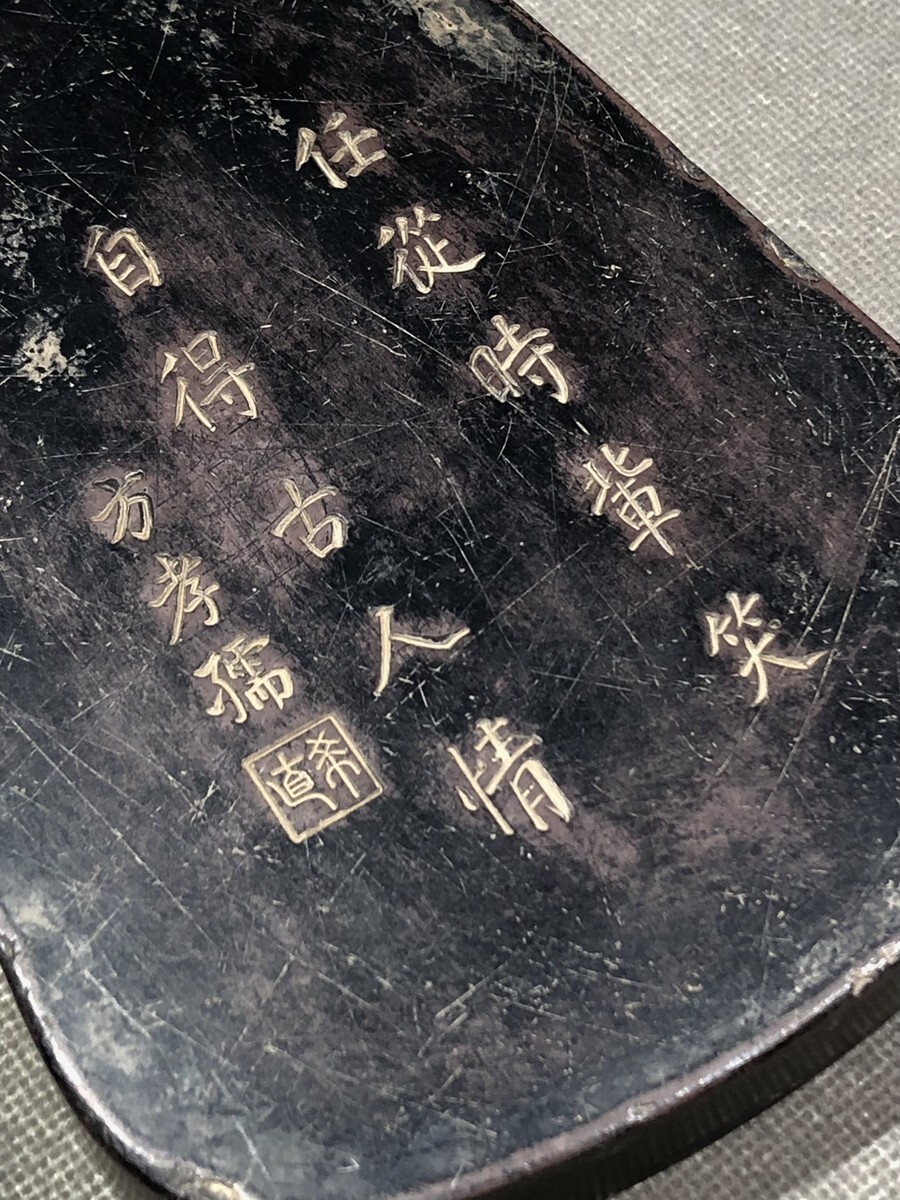 任從時軰笑
自得古人情
方孝孺
希直